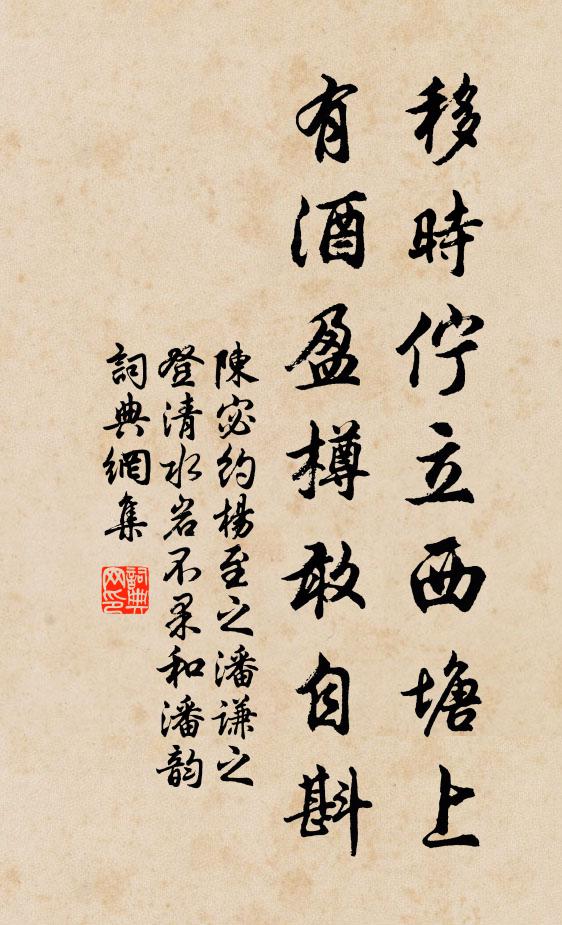 移時佇立西塘上
有酒盈樽敢自斟
陳宓約楊至之潘謙之
登清水岩不果和潘韵
詞典網集
詞典网印